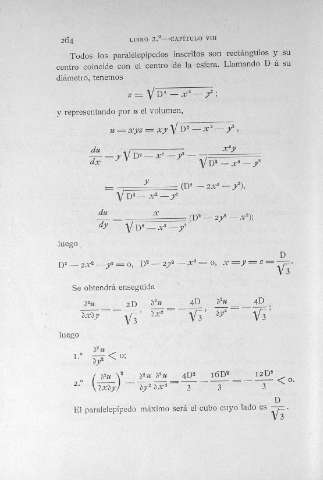 264 LIBRO 2.º—CAPÍTULO VIII
Todos los paralelepípedos inscritos son rectángulos y su
centro coincide con el centro de la esfera. Llamando D á su
diámetro, tenemos
z = √(D² — x² — y²);
y representando por u el volumen,
u = xyz = xy √(D² — x² — y²),
du/dx = y √(D² — x² — y²) — x²y/√(D² — x² — y²)
= y/√(D² — x² — y²) (D² — 2x² — y²),
du/dy = x/√(D² — x² — y²) (D² — 2y² — x²);
luego
D² — 2x² — y² = 0, D² — 2y² — x² = 0, x = y = z = D/√3.
Se obtendrá enseguida
∂²u/∂x∂y = — 2D/√3, ∂²u/∂x² = — 4D/√3, ∂²u/∂y² = — 4D/√3;
luego
1.º ∂²u/∂y² < 0;
2.º (∂²u/∂x∂y)² — ∂²u/∂y² ∂²u/∂x² = 4D²/3 — 16D²/3 = — 12D²/3 < 0.
El paralelepípedo máximo será el cubo cuyo lado es D/√3.